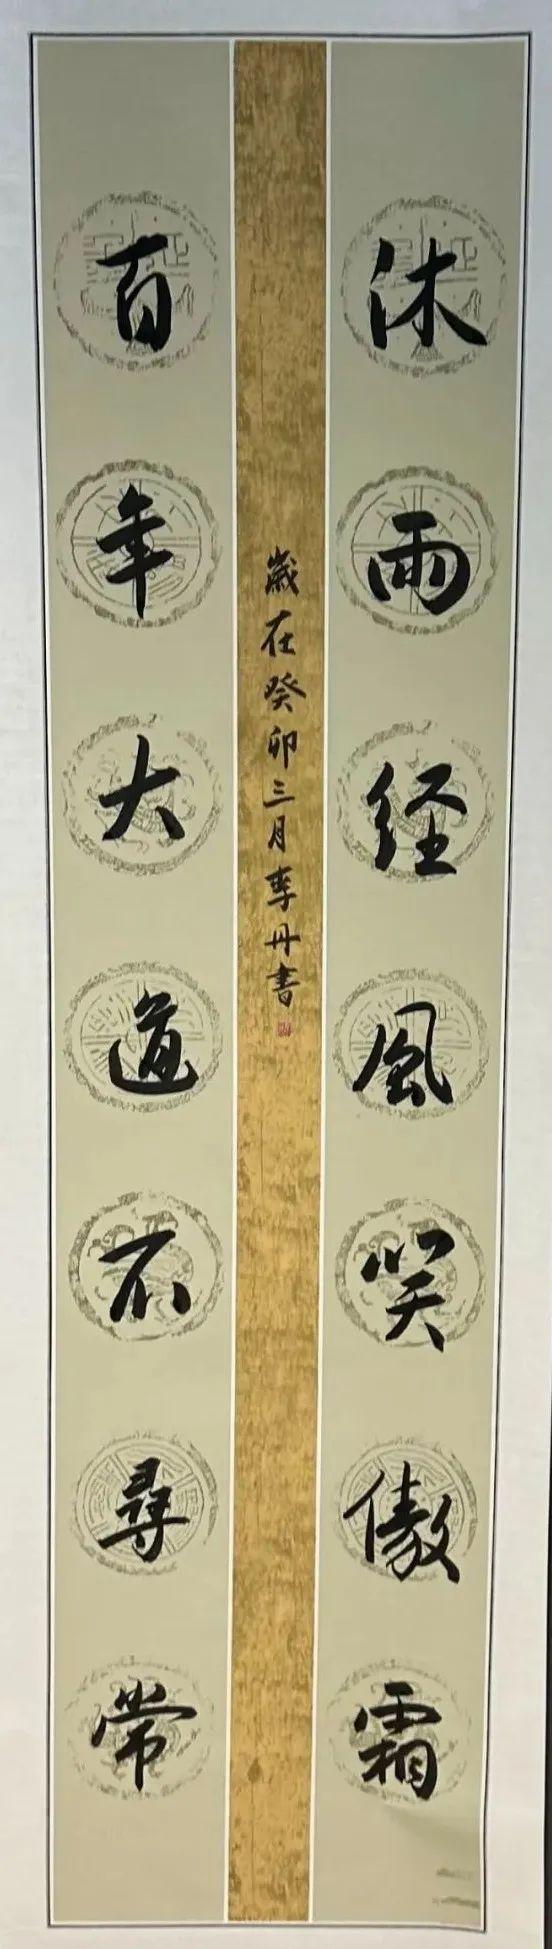 沐雨经風笑傲霜
歲在癸卯三月李丹書
百年大道不尋常